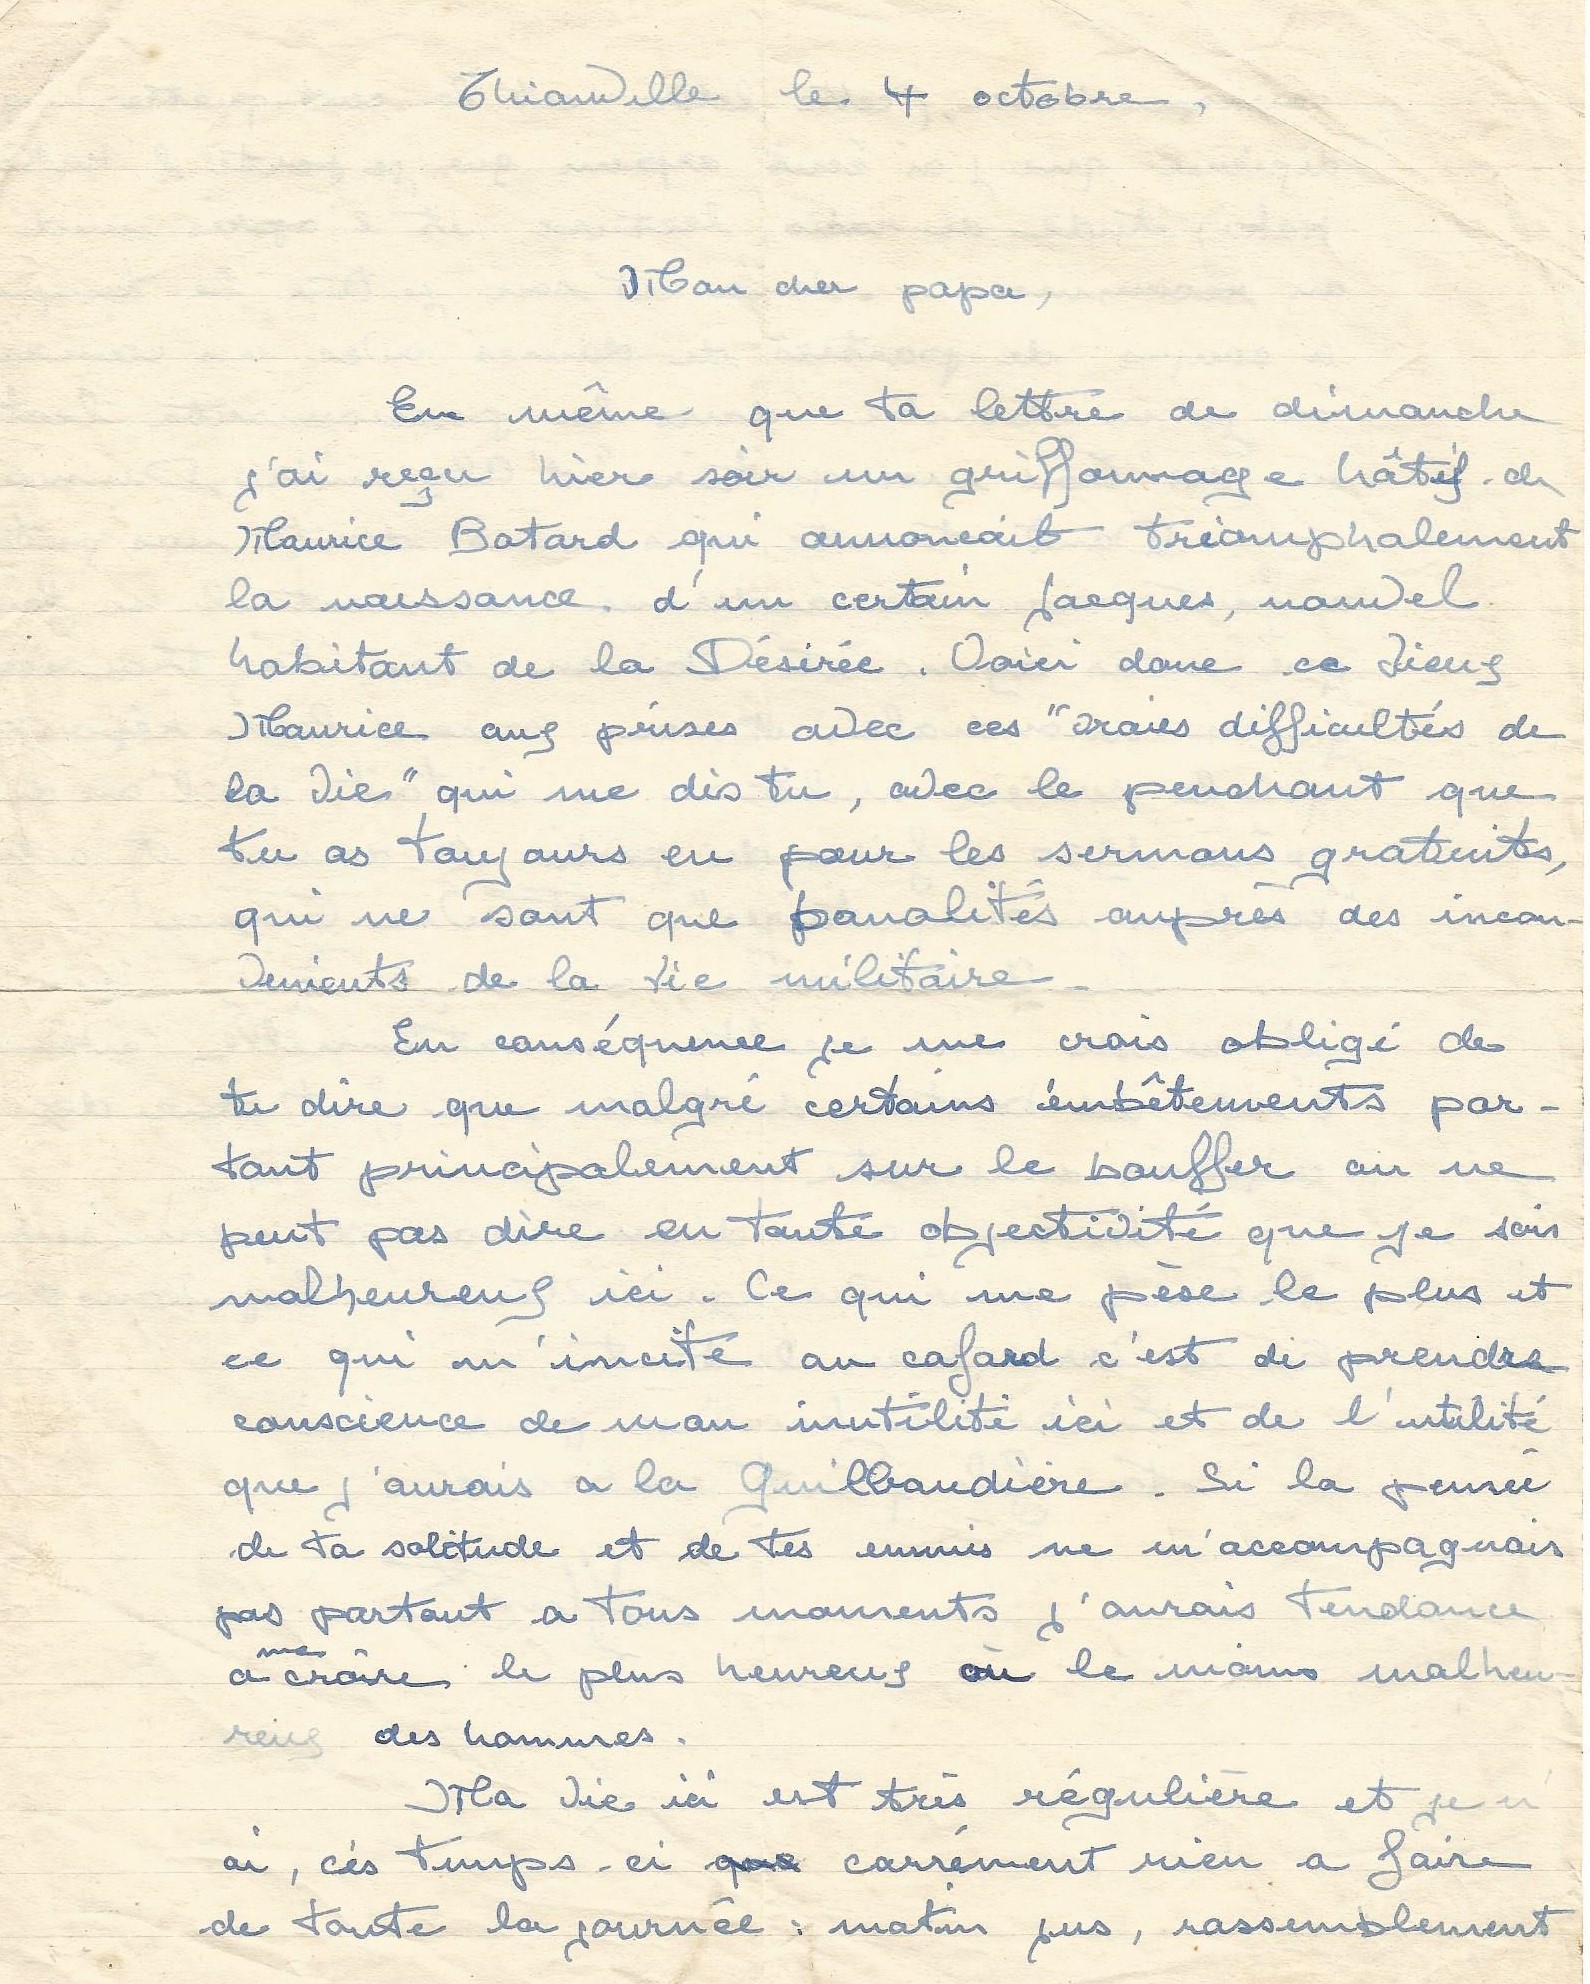 Thionville le 4 octobre,
Mon cher papa,
En même que ta lettre de dimanche
j'ai reçu hier soir un griffonnage hâtif de
Maurice Batard qui annonçait triomphalement
la naissance d'un certain Jacques, nouvel
habitant de la Désirée. Voici donc ce vieux
Maurice aux prises avec ces "vraies difficultés de
la vie" qui me dis tu, avec le penchant que
tu as toujours eu pour les sermons gratuits,
qui ne sont que banalités auprès des incon-
venients de la vie militaire.
En conséquence je me crois obligé de
te dire que malgré certains embêtements por-
tant principalement sur le bouffer on ne
peut pas dire en toute objectivité que je sois
malheureux ici. Ce qui me pèse le plus et
ce qui m'incite au cafard c'est de prendre
conscience de mon inutilité ici et de l'utilité
que j'aurais a la Guilbaudière. Si la pensée
de ta solitude et de tes ennuis ne m'accompagnais
pas partout a tous moments j'aurais tendance
à me croire le plus heureux ou le moins malheu-
reux des hommes.
Ma vie ici est très régulière et je n'
ai, ces temps-ci que carrément rien a faire
de toute la journée : matin jus, rassemblement